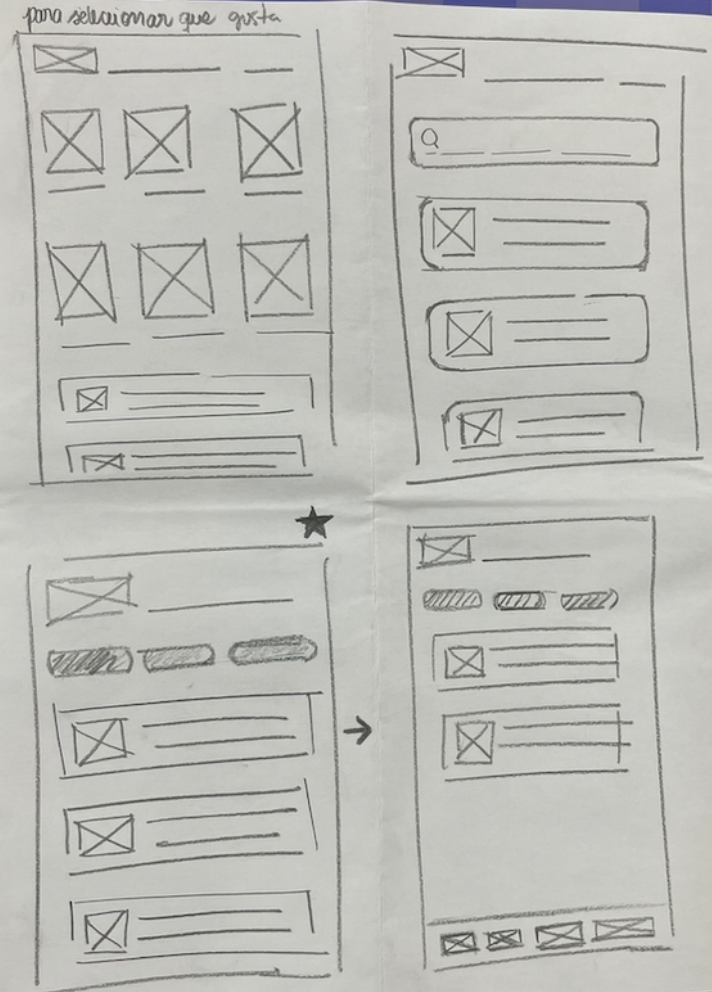 para selecionar que gusta